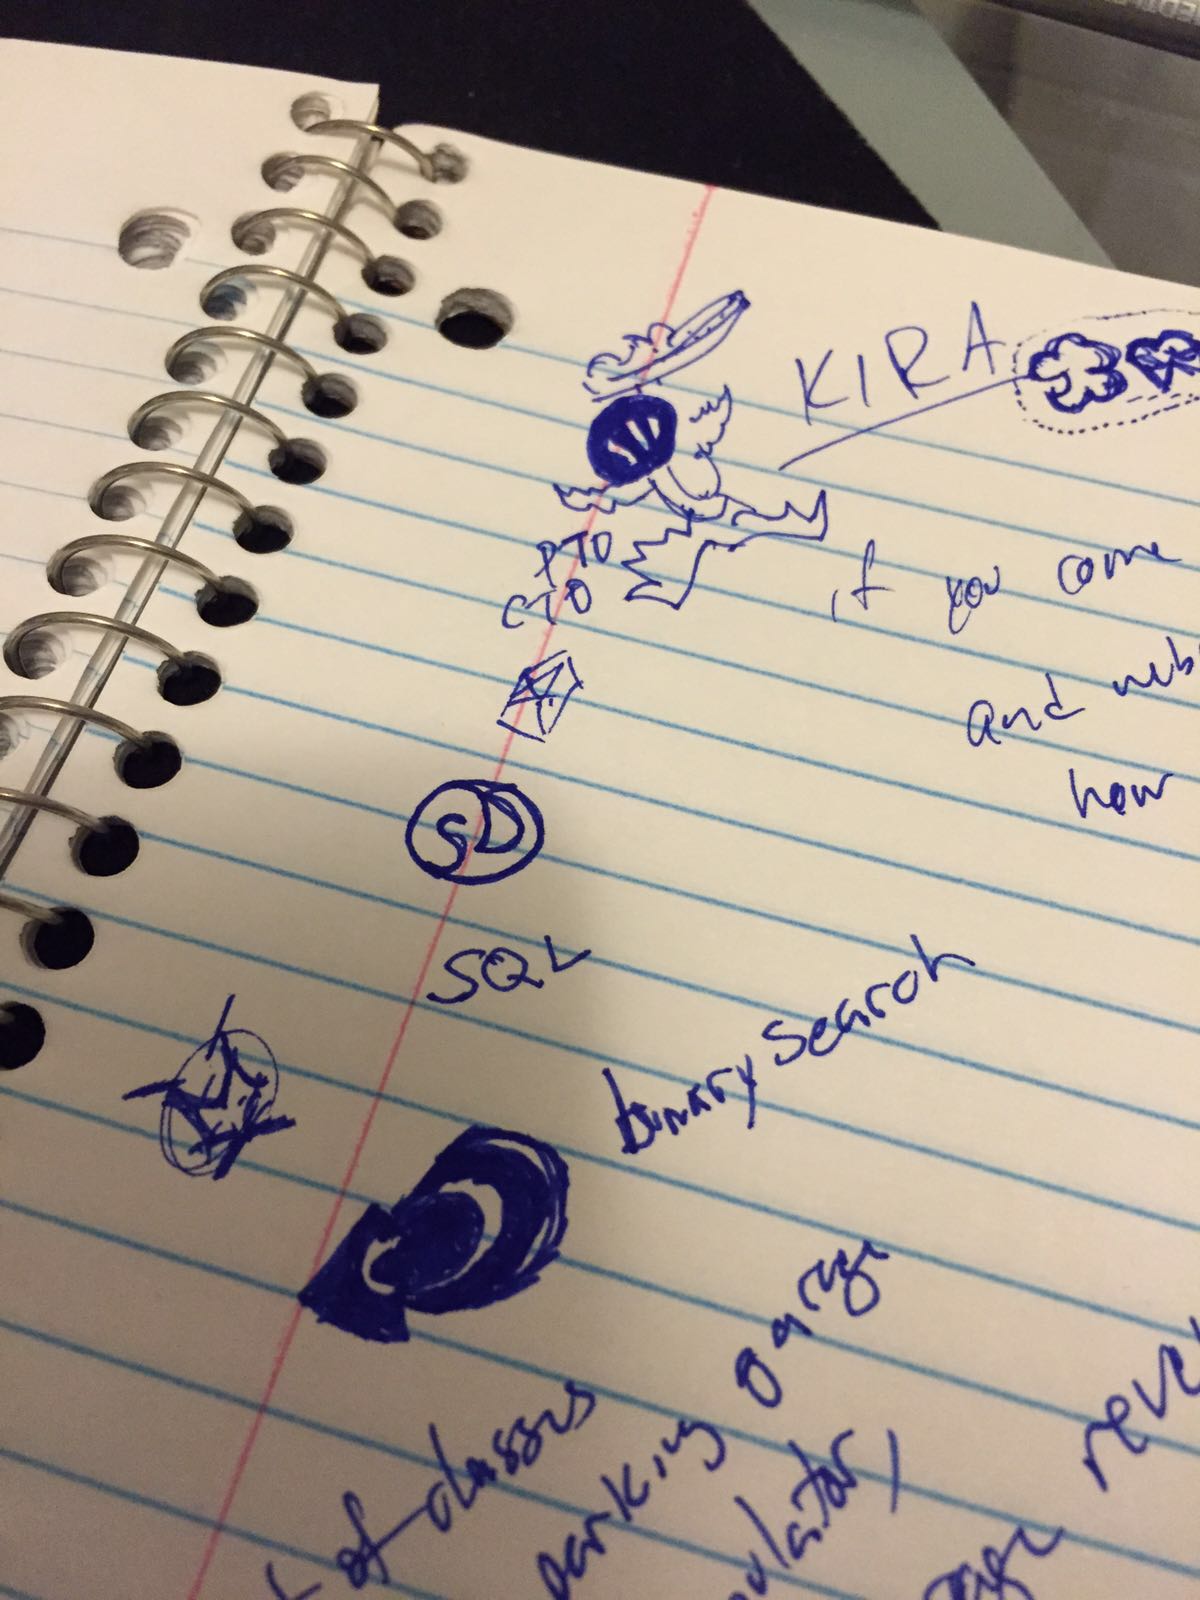 KIRA
PTO
CTO
if you come
and
how
SD
SQL
binary search
of classes
parking garage